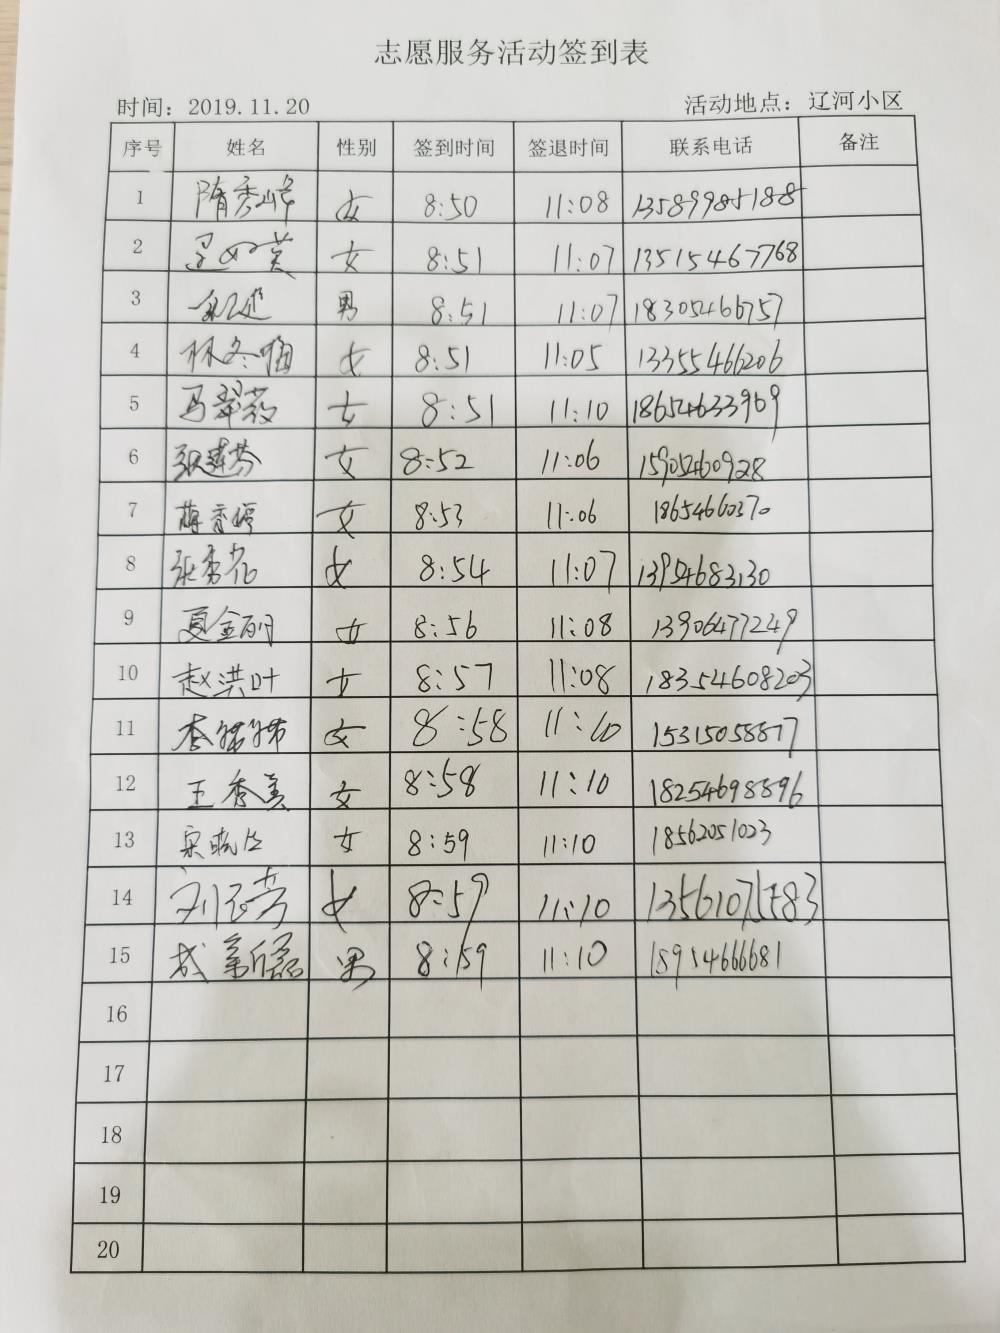 志愿服务活动签到表
时间：2019.11.20 活动地点：辽河小区
序号 姓名 性别 签到时间 签退时间 联系电话 备注
1 隋秀峰 女 8:50 11:08 13589985188
2 女 8:51 11:07 13515467768
3 男 8:51 11:07 18305466757
4 林冬梅 女 8:51 11:05 13355466206
5 马翠 女 8:51 11:10 18654633969
6 张莲芬 女 8:52 11:06 15905460928
7 薛秀婷 女 8:53 11:06 18654660370
8 张秀花 女 8:54 11:07 13954683130
9 夏金丽 女 8:56 11:08 13906477249
10 赵洪叶 女 8:57 11:08 18354608203
11 李娣娣 女 8:58 11:10 15315058817
12 王秀美 女 8:58 11:10 18254698896
13 女 8:59 11:10 18562051023
14 刘玉芳 女 8:59 11:10
15 成新磊 男 8:59 11:10 18954666681
16
17
18
19
20